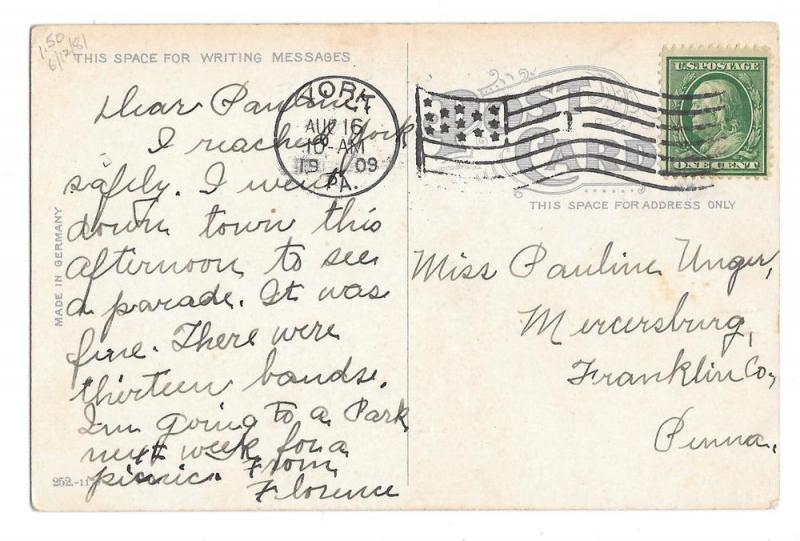 1.50
6/12/81
THIS SPACE FOR WRITING MESSAGES
Dear Pauline,
I reached York
safely. I went
down town this
afternoon to see
a parade. It was
fine. There were
thirteen bands.
I'm going to a Park
next week for a
picnic. From
Florence
MADE IN GERMANY
252.-11
YORK,
AUG 16
10-AM
19 09
PA.
U.S. POSTAGE
ONE CENT
POST
CARD
THIS SPACE FOR ADDRESS ONLY
Miss Pauline Unger,
Mercersburg,
Franklin Co,
Penna.